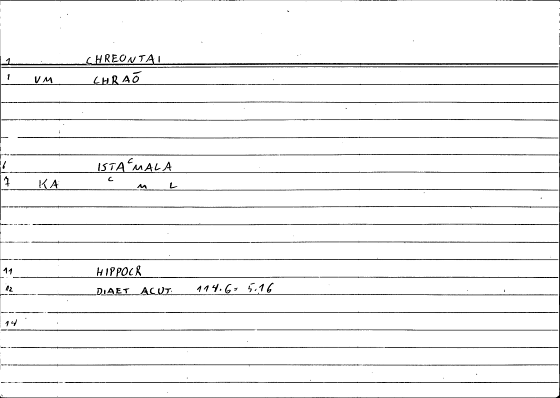 1 CHREONTAI
1 VM CHRAŌ
6 ISTAᶜMALA
7 KA C M L
11 HIPPOCR
12 DIAET ACUT. 114.6= 5.16
14